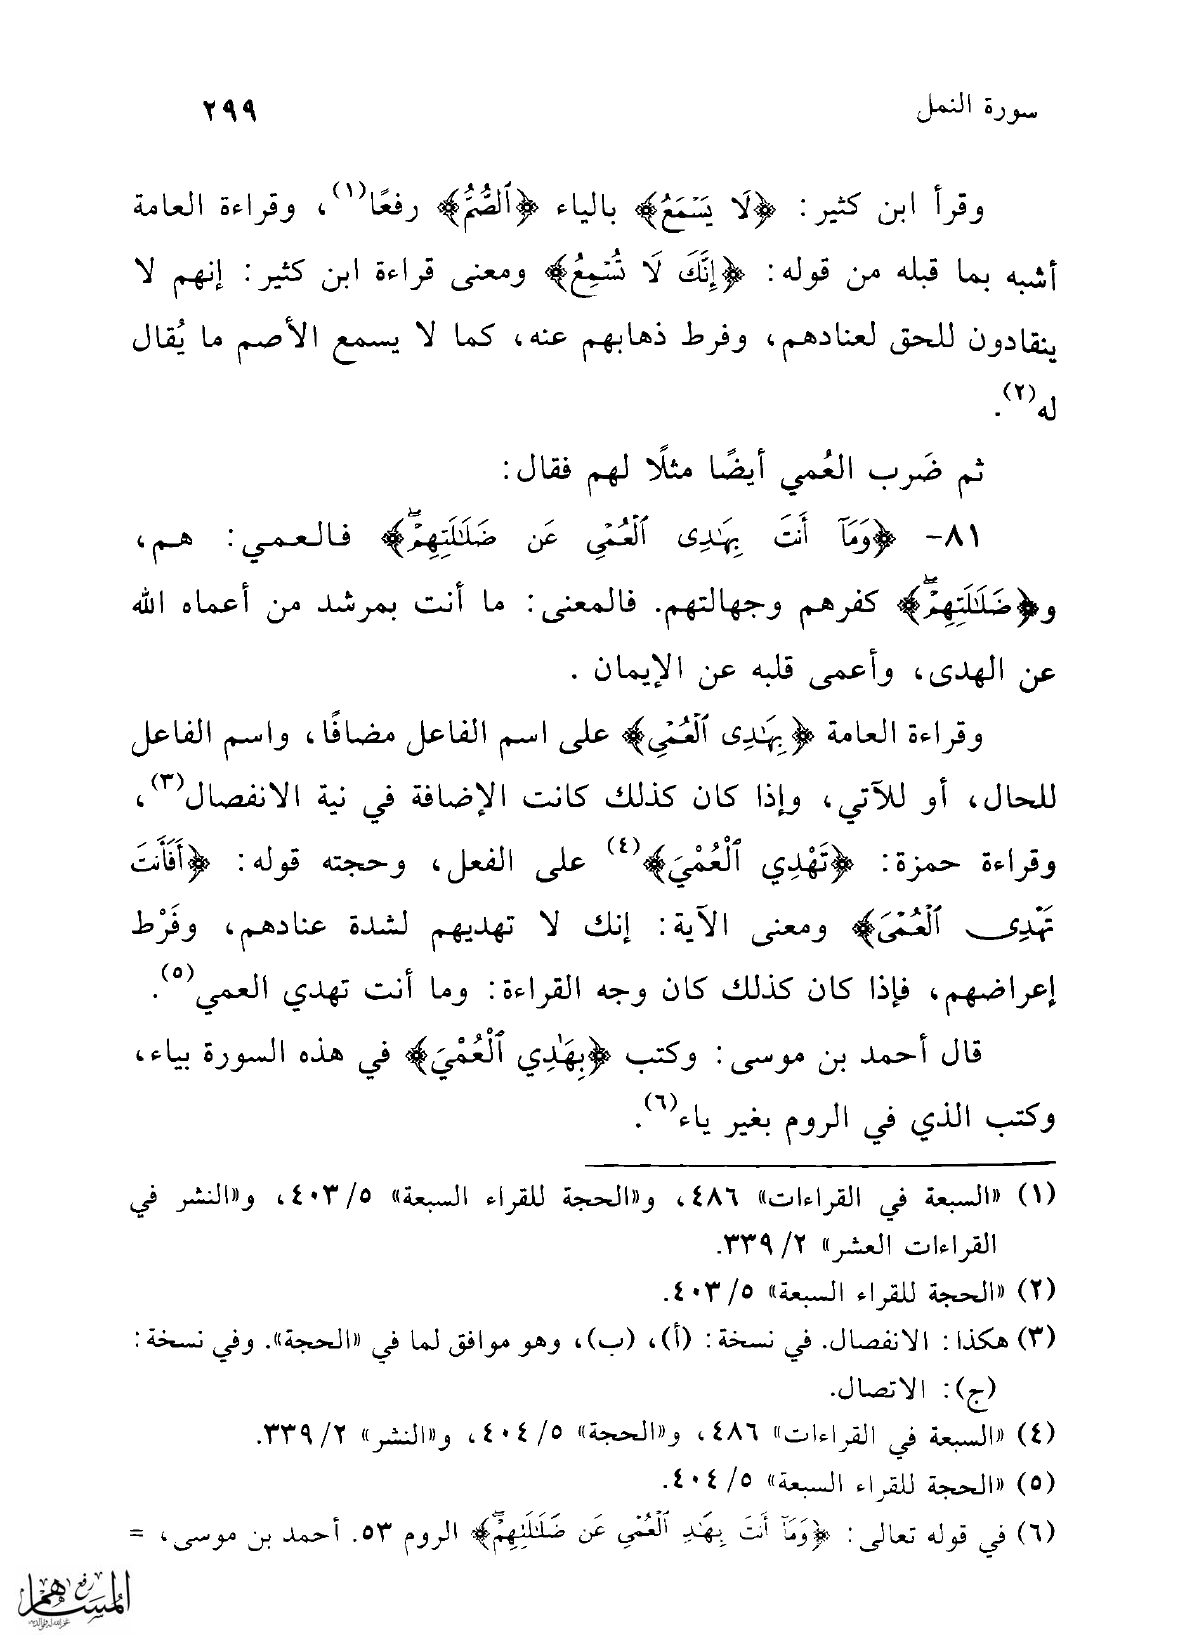 سورة النمل
٢٩٩
وقرأ ابن كثير: ﴿لَا يَسْمَعُ﴾ بالياء ﴿ٱلصُّمُّ﴾ رفعًا(١)، وقراءة العامة
أشبه بما قبله من قوله: ﴿إِنَّكَ لَا تُسْمِعُ﴾ ومعنى قراءة ابن كثير: إنهم لا
ينقادون للحق لعنادهم، وفرط ذهابهم عنه، كما لا يسمع الأصم ما يُقال
له(٢).
ثم ضَرب العُمي أيضًا مثلًا لهم فقال:
٨١- ﴿وَمَآ أَنتَ بِهَٰدِى ٱلْعُمْىِ عَن ضَلَٰلَتِهِمْۖ﴾ فالعمي: هم،
و﴿ضَلَٰلَتِهِمْۖ﴾ كفرهم وجهالتهم. فالمعنى: ما أنت بمرشد من أعماه الله
عن الهدى، وأعمى قلبه عن الإيمان .
وقراءة العامة ﴿بِهَٰدِى ٱلْعُمْىِ﴾ على اسم الفاعل مضافًا، واسم الفاعل
للحال، أو للآتي، وإذا كان كذلك كانت الإضافة في نية الانفصال(٣)،
وقراءة حمزة: ﴿تَهْدِي ٱلْعُمْيَ﴾(٤) على الفعل، وحجته قوله: ﴿أَفَأَنتَ
تَهْدِى ٱلْعُمْىَ﴾ ومعنى الآية: إنك لا تهديهم لشدة عنادهم، وفَرْط
إعراضهم، فإذا كان كذلك كان وجه القراءة: وما أنت تهدي العمي(٥).
قال أحمد بن موسى: وكتب ﴿بِهَٰدِي ٱلْعُمْيَ﴾ في هذه السورة بياء،
وكتب الذي في الروم بغير ياء(٦).
(١) «السبعة في القراءات» ٤٨٦، و«الحجة للقراء السبعة» ٥/ ٤٠٣، و«النشر في
القراءات العشر» ٢/ ٣٣٩.
(٢) «الحجة للقراء السبعة» ٥/ ٤٠٣.
(٣) هكذا: الانفصال. في نسخة: (أ)، (ب)، وهو موافق لما في «الحجة». وفي نسخة:
(ج): الاتصال.
(٤) «السبعة في القراءات» ٤٨٦، و«الحجة» ٥/ ٤٠٤، و«النشر» ٢/ ٣٣٩.
(٥) «الحجة للقراء السبعة» ٥/ ٤٠٤.
(٦) في قوله تعالى: ﴿وَمَآ أَنتَ بِهَٰدِ ٱلْعُمْىِ عَن ضَلَٰلَتِهِمْۖ﴾ الروم ٥٣. أحمد بن موسى، =